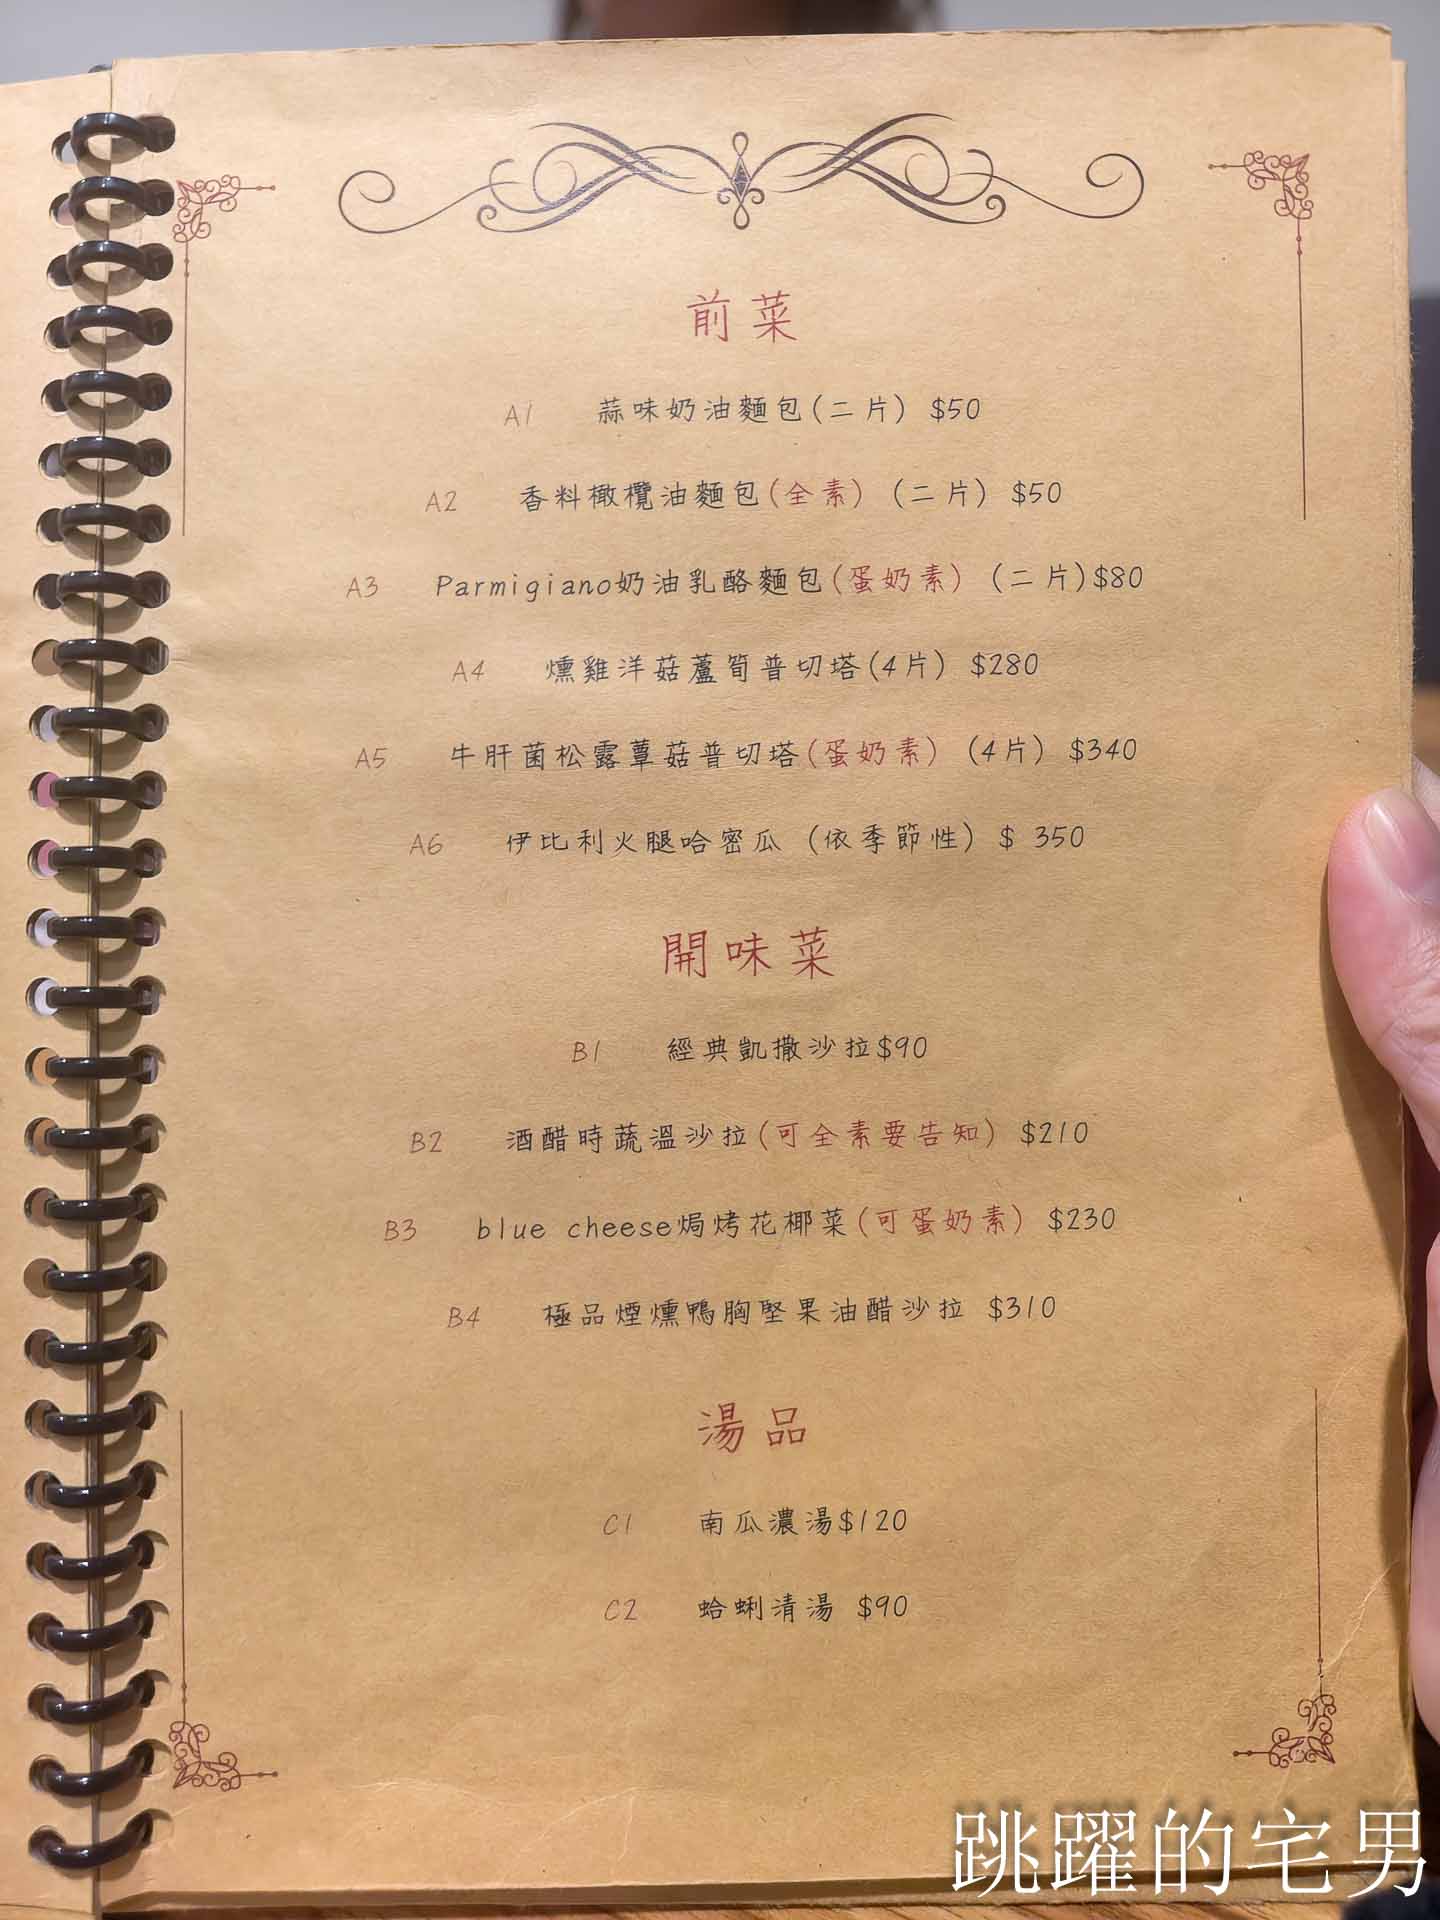 前菜
A1 蒜味奶油麵包(二片) $50
A2 香料橄欖油麵包(全素) (二片) $50
A3 Parmigiano奶油乳酪麵包(蛋奶素) (二片)$80
A4 燻雞洋菇蘆筍普切塔(4片) $280
A5 牛肝菌松露蕈菇普切塔(蛋奶素) (4片) $340
A6 伊比利火腿哈密瓜 (依季節性) $ 350
開味菜
B1 經典凱撒沙拉$90
B2 酒醋時蔬溫沙拉(可全素要告知) $210
B3 blue cheese焗烤花椰菜(可蛋奶素) $230
B4 極品煙燻鴨胸堅果油醋沙拉 $310
湯品
C1 南瓜濃湯$120
C2 蛤蜊清湯 $90
跳躍的宅男